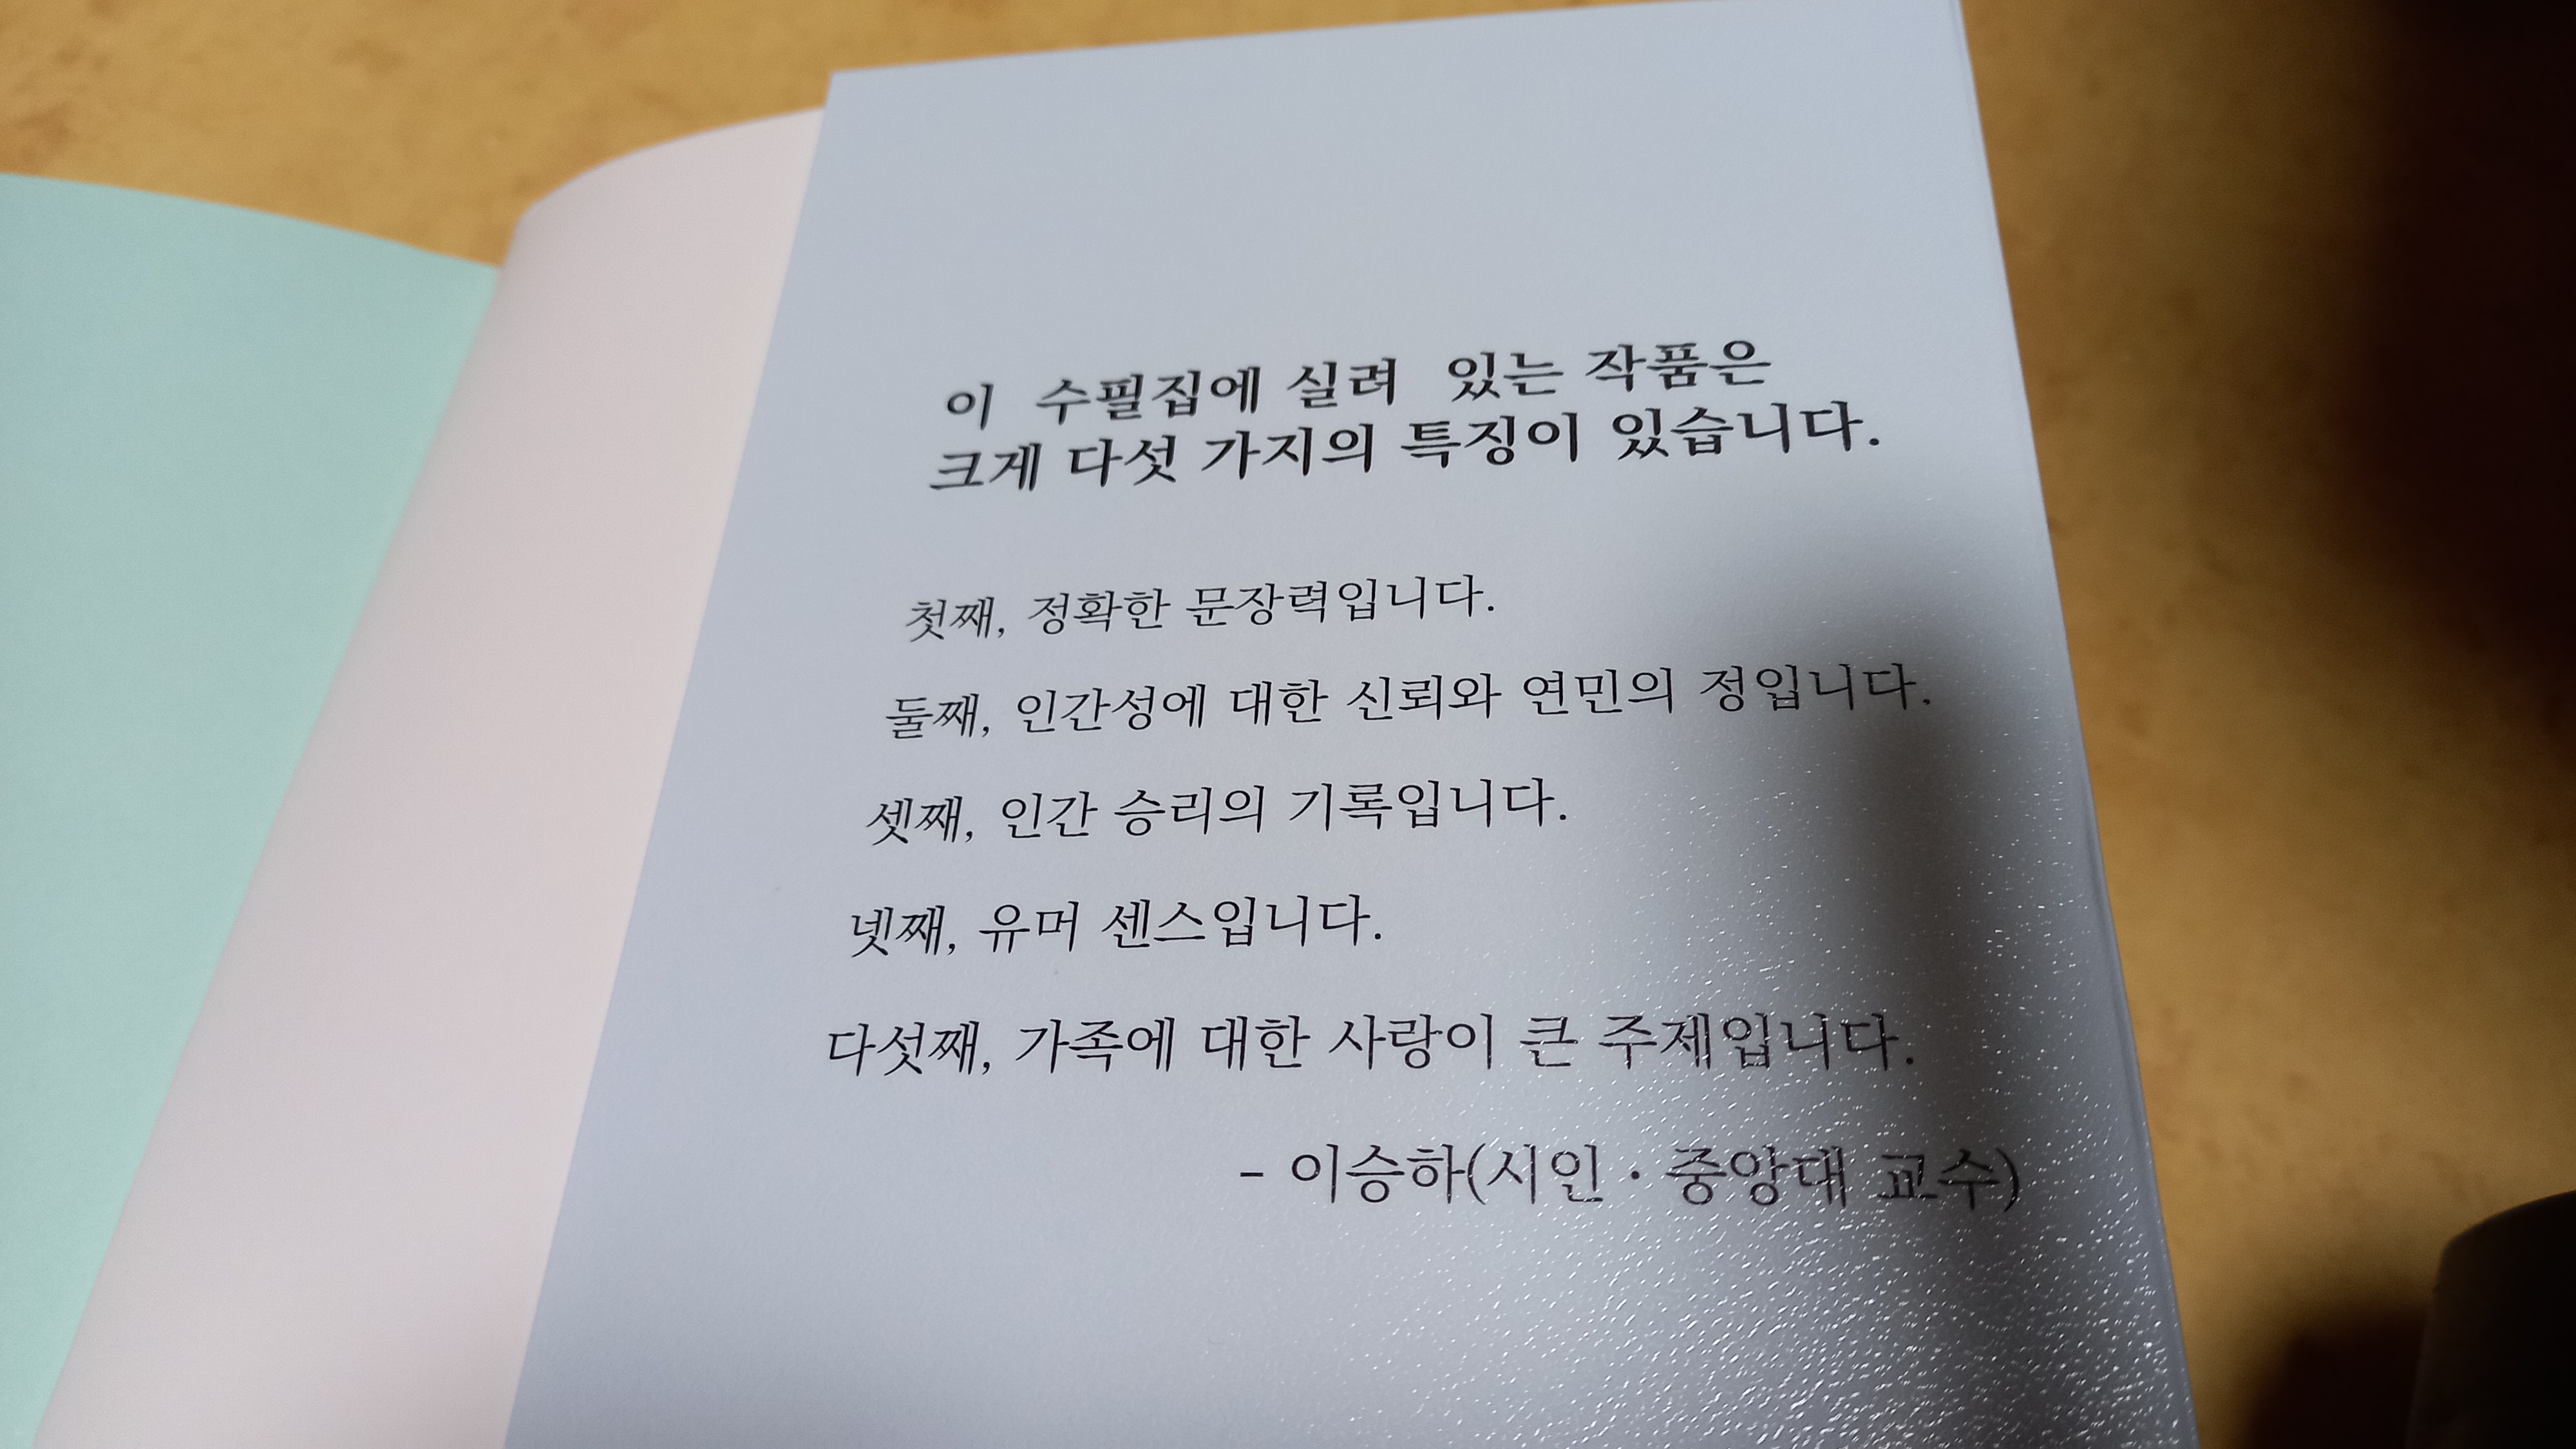 이 수필집에 실려 있는 작품은
크게 다섯 가지의 특징이 있습니다.
첫째, 정확한 문장력입니다.
둘째, 인간성에 대한 신뢰와 연민의 정입니다.
셋째, 인간 승리의 기록입니다.
넷째, 유머 센스입니다.
다섯째, 가족에 대한 사랑이 큰 주제입니다.
- 이승하(시인 · 중앙대 교수)